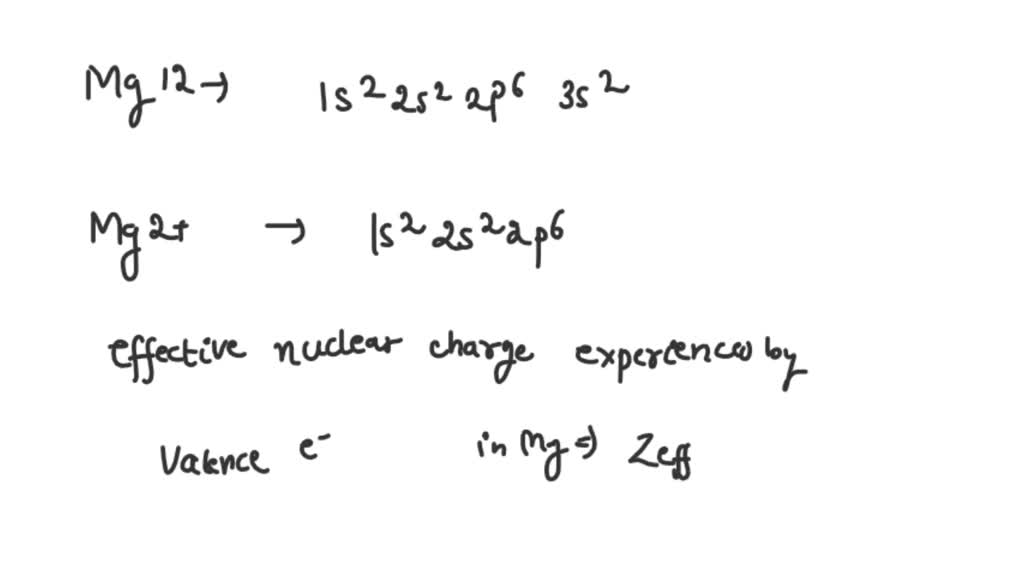 Mg 12 → 1s² 2s² 2p⁶ 3s²
Mg 2+ → 1s² 2s² 2p⁶
effective nuclear charge experienced by
Valence e⁻ in Mg ⇒ Zeff